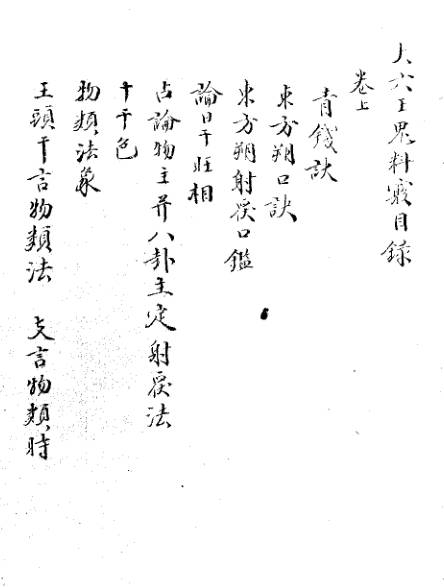 大六壬鬼料竅目录
卷上
青錢訣
東方朔口訣
東方朔射覆口鑑
論日干旺相
占論物主并八卦主定射覆法
十干色
物類法象
壬頭干言物類法　支言物類時